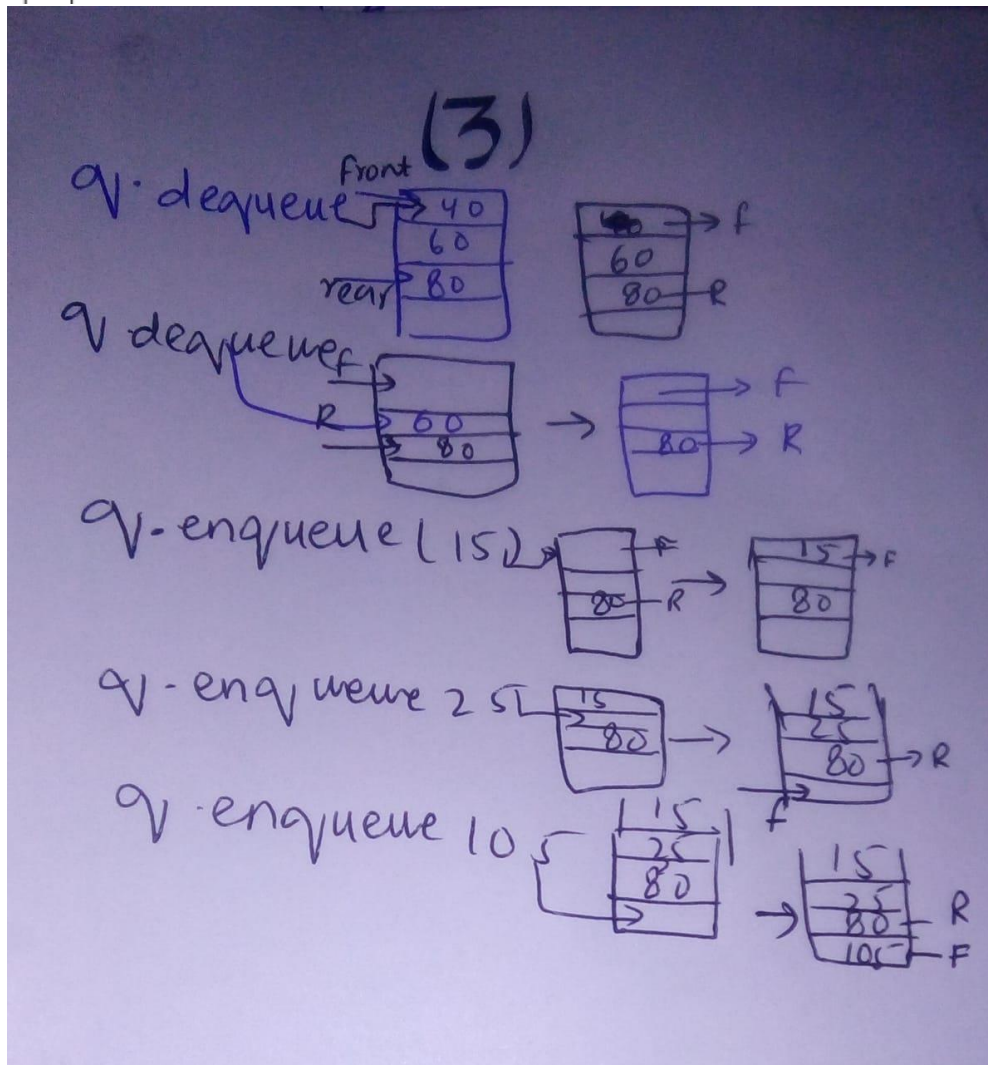 (3)
front
q. dequeue
40
60
rear 80
f
60
80 R
q dequeue
F
R 60
80
F
80 R
q. enqueue (15)
F
80 R
15 F
80
q. enqueue 25
15
80
15
25
80 R
f
q. enqueue 105
15
25
80
15
25
80 R
105 F